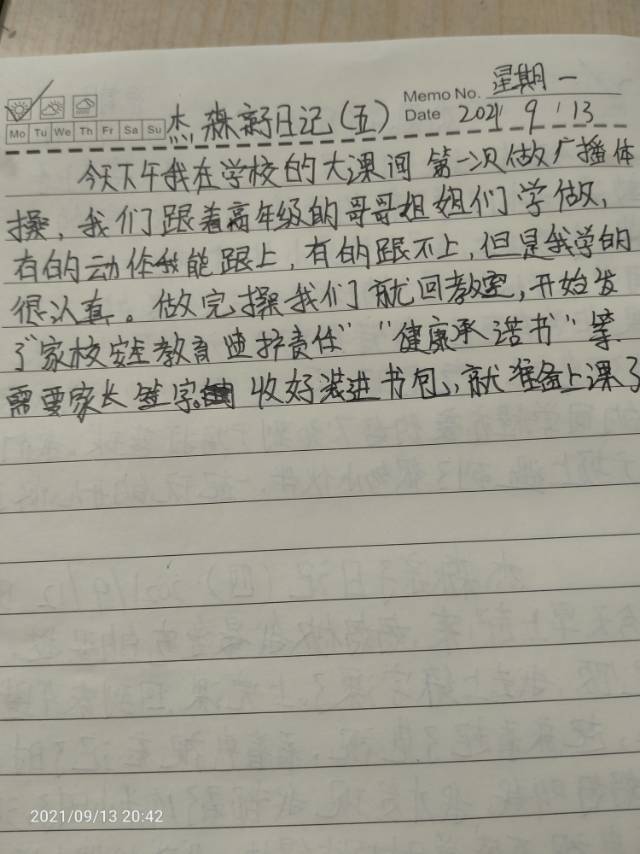 Memo No. 星期一
Mo Tu We Th Fr Sa Su
杰森亲子日记(五)
Date 2021 9 13
今天下午我在学校的大课间第一次做广播体
操,我们跟着高年级的哥哥姐姐们学做,
有的动作我能跟上,有的跟不上,但是我学的
很认真。做完操我们就回教室,开始发
了"家校安全教育监护责任""健康承诺书"等
需要家长签字。收好装进书包,就准备上课了
2021/09/13 20:42